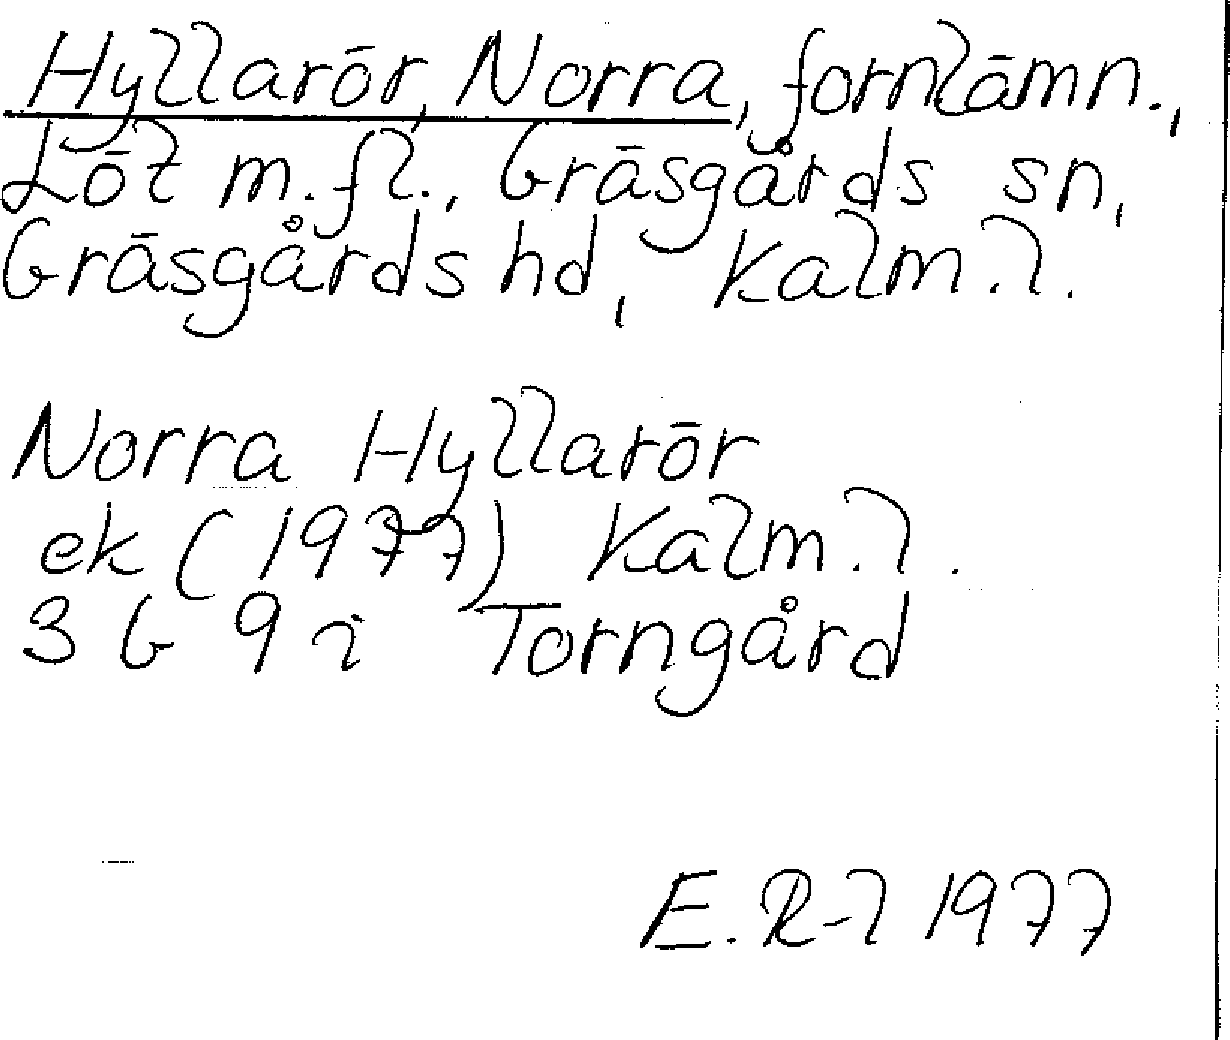 Hyllarör, Norra, fornlämn.,
Löt m.fl., Gräsgårds sn,
Gräsgårds hd, Kalm.l.
Norra Hyllarör
ek (1977) Kalm.l.
3 G 9 i Torngård
E.R-l 1977